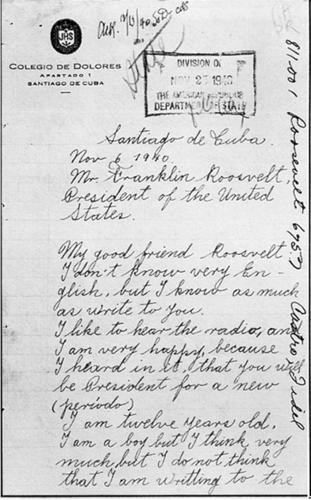 JHS
COLEGIO DE DOLORES
APARTADO 1
SANTIAGO DE CUBA
DIVISION OF
NOV 27 1940
THE AMERICAN REPUBLICS
DEPARTMENT OF STATE
Santiago de Cuba.
Nov 6 1940.
Mr. Franklin Roosvelt,
President of the United
States.
My good friend Roosvelt
I don't know very En-
glish, but I know as much
as write to you.
I like to hear the radio, and
I am very happy, because
I heard in it, that you will
be President for a new
(período)
I am twelve years old.
I am a boy but I think very
much, but I do not think
that I am writting to the
811.001 Roosevelt 6757
Castro, Fidel